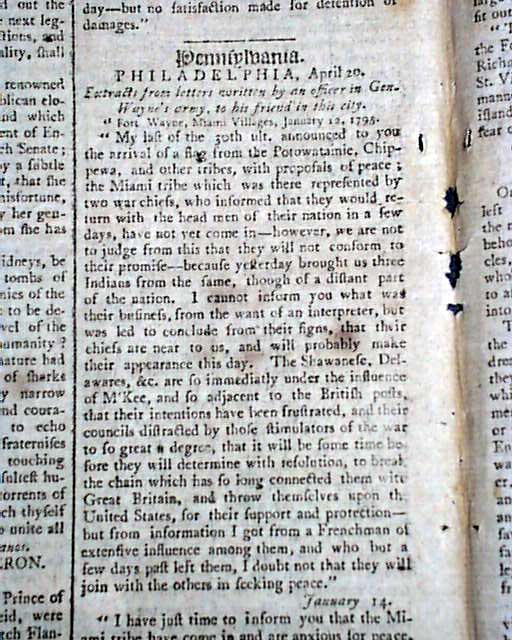 day—but no satisfaction made for detention or
damages."
Pennsylvania.
PHILADELPHIA, April 20.
Extracts from letters written by an officer in Gen.
Wayne's army, to his friend in this city.
" Fort Wayne, Miami Villages, January 12, 1795.
" My last of the 30th ult. announced to you
the arrival of a flag from the Potowatainic, Chip-
pewa, and other tribes, with proposals of peace ;
the Miami tribe which was there represented by
two war chiefs, who informed that they would re-
turn with the head men of their nation in a few
days, have not yet come in—however, we are not
to judge from this that they will not conform to
their promise—because yesterday brought us three
Indians from the same, though of a distant part
of the nation. I cannot inform you what was
their business, from the want of an interpreter, but
was led to conclude from their signs, that their
chiefs are near to us, and will probably make
their appearance this day. The Shawanese, Del-
awares, &c. are so immediatly under the influence
of M'Kee, and so adjacent to the British posts,
that their intentions have been frustrated, and their
councils distracted by those stimulators of the war
to so great a degree, that it will be some time be-
fore they will determine with resolution, to break
the chain which has so long connected them with
Great Britain, and throw themselves upon th
United States, for their support and protection—
but from information I got from a Frenchman of
extensive influence among them, and who but a
few days past left them, I doubt not that they will
join with the others in seeking peace."
January 14.
" I have just time to inform you that the Mi-
ami tribe have come in and are anxious for peace.
out the
next leg-
renowned
blican elo-
and which
ent of En-
h Senate ;
by a subtle
t, that she
misfortune,
y her gen-
om she has
idneys, be
tombs of
nies of the
to be de-
vel of the
umanity ?
nature had
of sharks
y narrow
and coura-
to echo
fraternises
touching
sulest hu-
torrents of
ch thyself
o unite all
RON.
Prince of
eid, were
tch Flan-